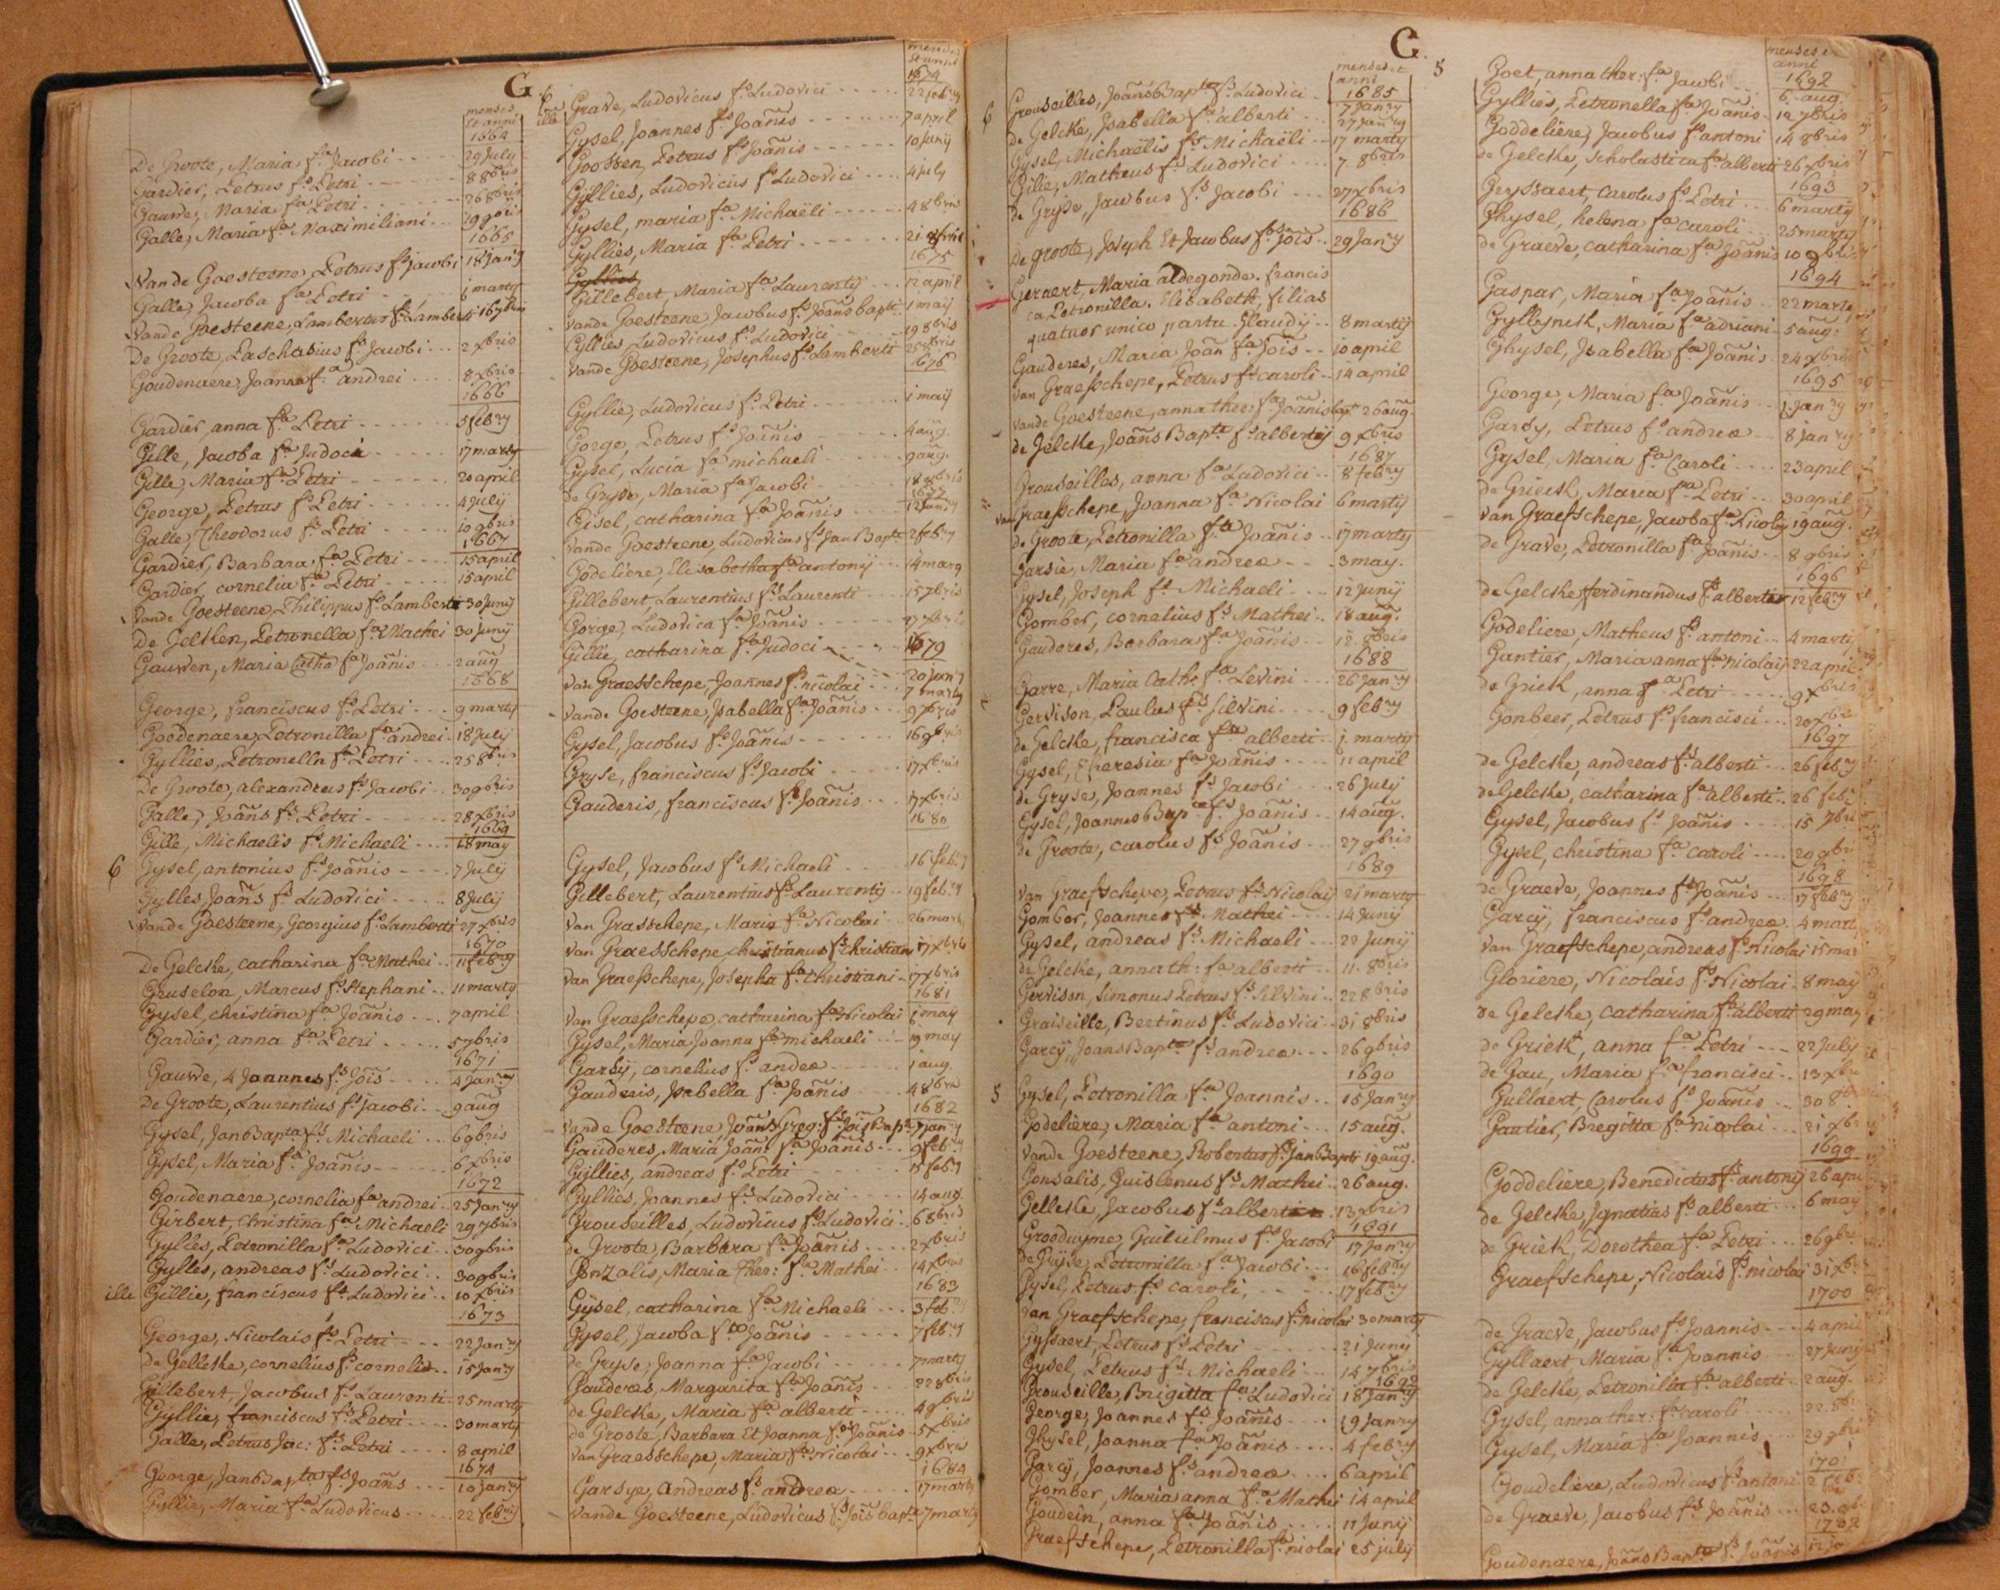 G.
menses et anni
1664
De Groote, Maria fa Jacobi 29 July
Gardier, Petrus fs Petri 8 8bris
Gauwe, Maria fa Petri 26 8bris
Galle, Maria fa Maximiliani 29 9bris
1665
Van de Goesteene Petrus fs Jacobi 18 Janry
Galle, Jacoba fa Petri 6 marty
Vande Goesteene, Lambertus fs Lamberti 16 7bris
De Groote, Paschasius fs Jacobi 2 xbris
Goudenaere, Joanna fa andrei 8 xbris
1666
Gardier, anna fa Petri 5 febry
Gille, Jacoba fa Judoci 17 marty
Gille, Maria fa Petri 20 april
George, Petrus fs Petri 4 july
Galle, Theodorus fs Petri 10 9bris
1667
Gardier, Barbara fa Petri 15 april
Gardier, cornelia fa Petri 15 april
Vande Goesteene, Philippus fs Lamberti 30 Junij
De Gelcken, Petronella fa Mathei 30 Junij
Gauwen, Maria Catha fa Joãnis 2 aug
1668
George, franciscus fs Petri 9 marty
Goedenaere, Petronilla fa andrei 18 July
Gyllies, Petronella fa Petri 25 8bris
De Groote, alexandreus fs Jacobi 30 9bris
Galle, Joãns fs Petri 28 xbris
1669
Gille, Michaelis fs Michaeli 18 may
6 Gysel, antonius fs Joãnis 7 July
Gylles, Joãns fs Ludovici 8 July
Vande Goesteene, Georgius fs Lamberti 27 xbris
1670
De Gelcke, catharina fa Mathei 11 febry
Geuselon, Marcus fs Stephani 11 marty
Gysel, christina fa Joãnis 7 april
Gardier, anna fa Petri 5 7bris
1671
Gauwe, 4 Joannes fs Jois 4 Janry
De Groote, Laurentius fs Jacobi 9 aug
Gysel, Jan Bapta fs Michaeli 6 9bris
Gysel, Maria fa Joãnis 6 xbris
1672
Goudenaere, cornelia fa andrei 25 Janry
Girbert, christina fa Michaeli 29 7bris
Gylies, Petronilla fa Ludovici 30 9bris
Gylles, andreas fs Ludovici 30 9bris
ille Gillie, franciscus fs Ludovici 10 xbris
1673
George, Nicolais fs Petri 22 Janry
de Gellcke, cornelius fs cornelis 15 Janry
Gillebert, Jacobus fs Laurenti 25 marty
Gyllie, franciscus fs Petri 30 marty
Galle, Petrus Jac: fs Petri 8 april
1674
George, Jan Bapta fs Joãns 10 Janry
Gyllie, Maria fa Ludovicus 22 febry
menses et anni
1674
6 ille Grave, Ludovicus fs Ludovici 22 febry
Gysel, Joannes fs Joãnis 7 april
Goossen, Petrus fs Joãnis 10 Junij
Gyllies, Ludovicus fs Ludovici 4 july
Gysel, maria fa Michaëli 4 8bris
Gyllies, Maria fa Petri
1675
Gyllies
Gillebert, Maria fa Laurentij 12 april
Vande Goesteene Jacobus fs Joãns bapt. 1 may
Gyllies Ludovicus fs Ludovici 19 8bris
Vande Goesteene, Josephus fs Lamberti 25 9bris
1676
Gyllie, Ludovicus fs Petri 1 maij
Gorge, Petrus fs Joãnis 4 aug.
Gysel, Lucia fa michaeli 9 aug.
de Gryse, Maria fa Jacobi 18 8bris
1677
Gisel, catharina fa Joãnis 12 Janry
Vande Goesteene, Ludovicus fs Jan Bapt. 2 febry
Godeliere, Elisabetha fa antonij 14 marty
Gillebert, Laurentius fs Laurenti 15 7bris
Gorge, Ludovica fa Joãnis 27 xbris
Gillie, catharina fa Judoci
1679
Van Graesschepe, Joannes fs nicolai 20 Janry
7 marty
Vande Goesteene, Isabella fa Joãnis 9 7bris
Gysel, Jacobus fs Joãnis 16 9bris
Gryse, franciscus fs Jacobi 17 xbris
Gauderis, franciscus fs Joãnis 17 xbris
1680
Gysel, Jacobus fs Michaeli 16 febry
Gillebert, Laurentius fs Laurentij 19 febry
Van Grasschepe, Maria fa Nicolai 26 mart
Van Graesschepe christianus fs christiani 17 xbris
Van Graesschepe, Josepha fa christiani 17 xbris
1681
Van Graesschepe, catharina fa Nicolai 6 may
Gysel, Maria Joanna fa michaeli 19 may
Garsy, cornelius fs andreæ 1 aug.
Gauderis, Isabella fa Joãnis 4 8bris
1682
Vande Goesteene, Joãns Greg: fs Jois Bapt. 7 janry
Gauderes, Maria Joãn: fa Joãnis 9 feb.
Gyllies, andreas fs Petri 15 febry
Gyllies, Joannes fs Ludovici 14 aug.
Grouseilles, Ludovicus fs Ludovici 6 8bris
de Groote, Barbara fa Joãnis 2 xbris
Gonzalis, Maria Ther: fa Mathei 14 xbris
1683
Gysel, catharina fa Michaeli 3 febry
Gysel, Jacoba fa Joãnis 7 febry
de Gryse, Joanna fa Jacobi 7 marty
Gauderes, Margarita fa Joãnis 22 8bris
de Gelcke, Maria fa alberti 4 9bris
de Groote, Barbara Et Joanna fs Joãnis 5 xbris
Van Graesschepe, Maria fa Nicolai 9 xbris
1684
Garsye, Andreas fs andreæ 17 marty
Vande Goesteene, Ludovicus fs Jois bapt. 7 marty
G.
menses et anni
1685
6 Grouseilles, Joãns Bapta fs Ludovici 7 Janry
de Gelcke, Isabella fa alberti 27 Janry
Gysel, Michaelis fs Michaëli 17 marty
Gilie, Matheus fs Ludovici 7 8bris
de Gryse, Jacobus fs Jacobi 27 xbris
1686
de groote, Joseph Et Jacobus fs Jois 29 Janry
Geraert, Maria aldegonde. francis
ca Petronilla. Elisabeth, filias
quatuor unico partu Glaudij 8 marty
Gauderes, Maria Joãn fa Jois 10 april
Van Graesschepe, Petrus fs caroli 14 april
Vande Goesteene, anna ther: fa Joãnis bapt. 26 aug.
de Gelcke, Joãns Bapta fs albertij 9 xbris
1687
Grouseilles, anna fa Ludovici 8 febry
Van Graesschepe, Joanna fa Nicolai 6 marty
de Groote, Petronilla fa Joãnis 17 marty
Garsie, Maria fa andreæ 3 may.
Gysel, Joseph fs Michaeli 12 junij
Gomber, cornelius fs Mathei 18 aug.
Gauderes, Barbara fa Joãnis 12 9bris
1688
Garre, Maria Cath: fa Levini 26 Janry
Gervison, Paulus fs Silvini 9 febry
de Gelcke, francisca fa alberti 1 marty
Gysel, Theresia fa Joãnis 11 april
de Gryse, Joannes fs Jacobi 26 July
Gysel, Joannes Bapta fs Joãnis 14 aug.
de Groote, carolus fs Joãnis 27 9bris
1689
Van Graesschepe, Petrus fs Nicolaij 21 marty
Gombor, Joannes fs Mathei 14 Junij
Gysel, andreas fs Michaeli 22 Junij
de Gelcke, anna th: fa alberti 11. 8bris
Gervison, Simonus Petrus fs Silvini 22 8bris
Graiseille, Bertinus fs Ludovici 31 8bris
Garcij, Joãns Bapta fs andreæ 26 9bris
1690
5 Gysel, Petronilla fa Joannis 15 Janry
Godeliere, Maria fa antoni 15 aug.
Vande Goesteene, Robertus fs Jan Bapti 19 aug.
Gonsalis, Guislenus fs Mathei 26 aug.
Gellcke, Jacobus fs alberti 13 xbris
1691
Grooduyme, Guilielmus fs Jacobi 17 Janry
De Gryse, Petronilla fa Jacobi 16 febry
Gysel, Petrus fs caroli, 17 febry
Van Graefschepe, franciscus fs nicolai 30 marty
Gyssaert, Petrus fs Petri 21 Junij
Gysel, Petrus fs Michaeli 14 7bris
1692
Grouseille, Brigitta fa Ludovici 18 Janry
George, Joannes fs Joãnis 19 Janry
Ghysel, Joanna fa Joãnis 4 febry
Garcij, Joannes fs andreæ 6 april
Gomber, Maria anna fa Mathei 14 april
Goudein, anna fa Joãnis 11 Junij
Graefschepe, Petronilla fa niolai 25 july
menses et anni
1692
5 Goet, anna ther: fa Jacobi 6 aug.
Gyllies, Petronella fa Joãnis 12 7bris
Goddeliere, Jacobus fs antoni 14 8bris
de Gelcke, Scholastica fa alberti 26 xbris
1693
Geyssaert, Carolus fs Petri 6 marty
Ghysel, helena fa caroli 25 marty
de Graeve, catharina fa Joãnis 10 9bris
1694
Gaspar, Maria fa Joãnis 22 marty
Gyllynck, Maria fa adriani 5 aug.
Ghysel, Isabella fa Joãnis 24 xbris
1695
George, Maria fa Joãnis 1 Janry
Garsy, Petrus fs andreæ 8 janry
Gysel, Maria fa Caroli 23 april
de Grieck, Maria fa Petri 30 april
Van Graefschepe, Jacoba fa Nicolaij 19 aug.
de Grave, Petronilla fa Joãnis 8 9bris
1696
de Gelcke ferdinandus fs alberti 12 febry
Godeliere, Matheus fs antoni 4 marty
Gantier, Maria anna fa nicolaij 22 april
de Griek, anna fa Petri 9 xbris
Gonbeer, Petrus fs francisci 20 xbr
1697
de Gelcke, andreas fs alberti 26 febry
de Gelcke, catharina fa alberti 26 feb
Gysel, Jacobus fs Joãnis 15 7bri
Gysel, christina fa caroli 20 9br
1698
de Graeve, Joannes fs Joãnis 17 febry
Garcij, franciscus fs andreæ 4 mart
Van Graefschepe, andreas fs Nicolai 15 mar
Gloriere, Nicolais fs Nicolai 8 may
de Gelcke, catharina fa alberti 29 may
de Griek, anna fa Petri 22 july
de Gau, Maria fa francisci 13 xbr
Gullaert, Carolus fs Joãnis 30 8br
Gautier, Bregitta fa nicolai 21 xbr
1699
Goddeliere, Benedictus fs antonij 26 apri
de Gelcke, Ignatius fs alberti 6 may
de Griek, Dorothea fa Petri 26 9br
Graefschepe, Nicolais fs nicolai 31 xbr
1700
de Graeve, Jacobus fs Joannis 4 april
Gyllaert Maria fa Joannis 27 Juny
de Gelcke, Petronilla fa alberti 2 aug.
Gysel, anna ther: fa caroli
Gysel, Maria fa Joannis 29 9br
1701
Goudeliere, Ludovicus fs antoni 2 feb
de Graeve, Jacobus fs Joãnis
1702
Goudenaere, Joãns Bapta fs Joãnis